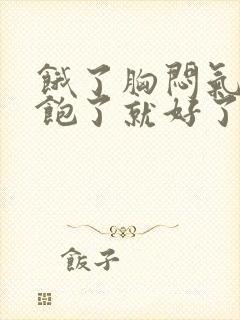 餓了胸悶氣
飽了就好了
飯子